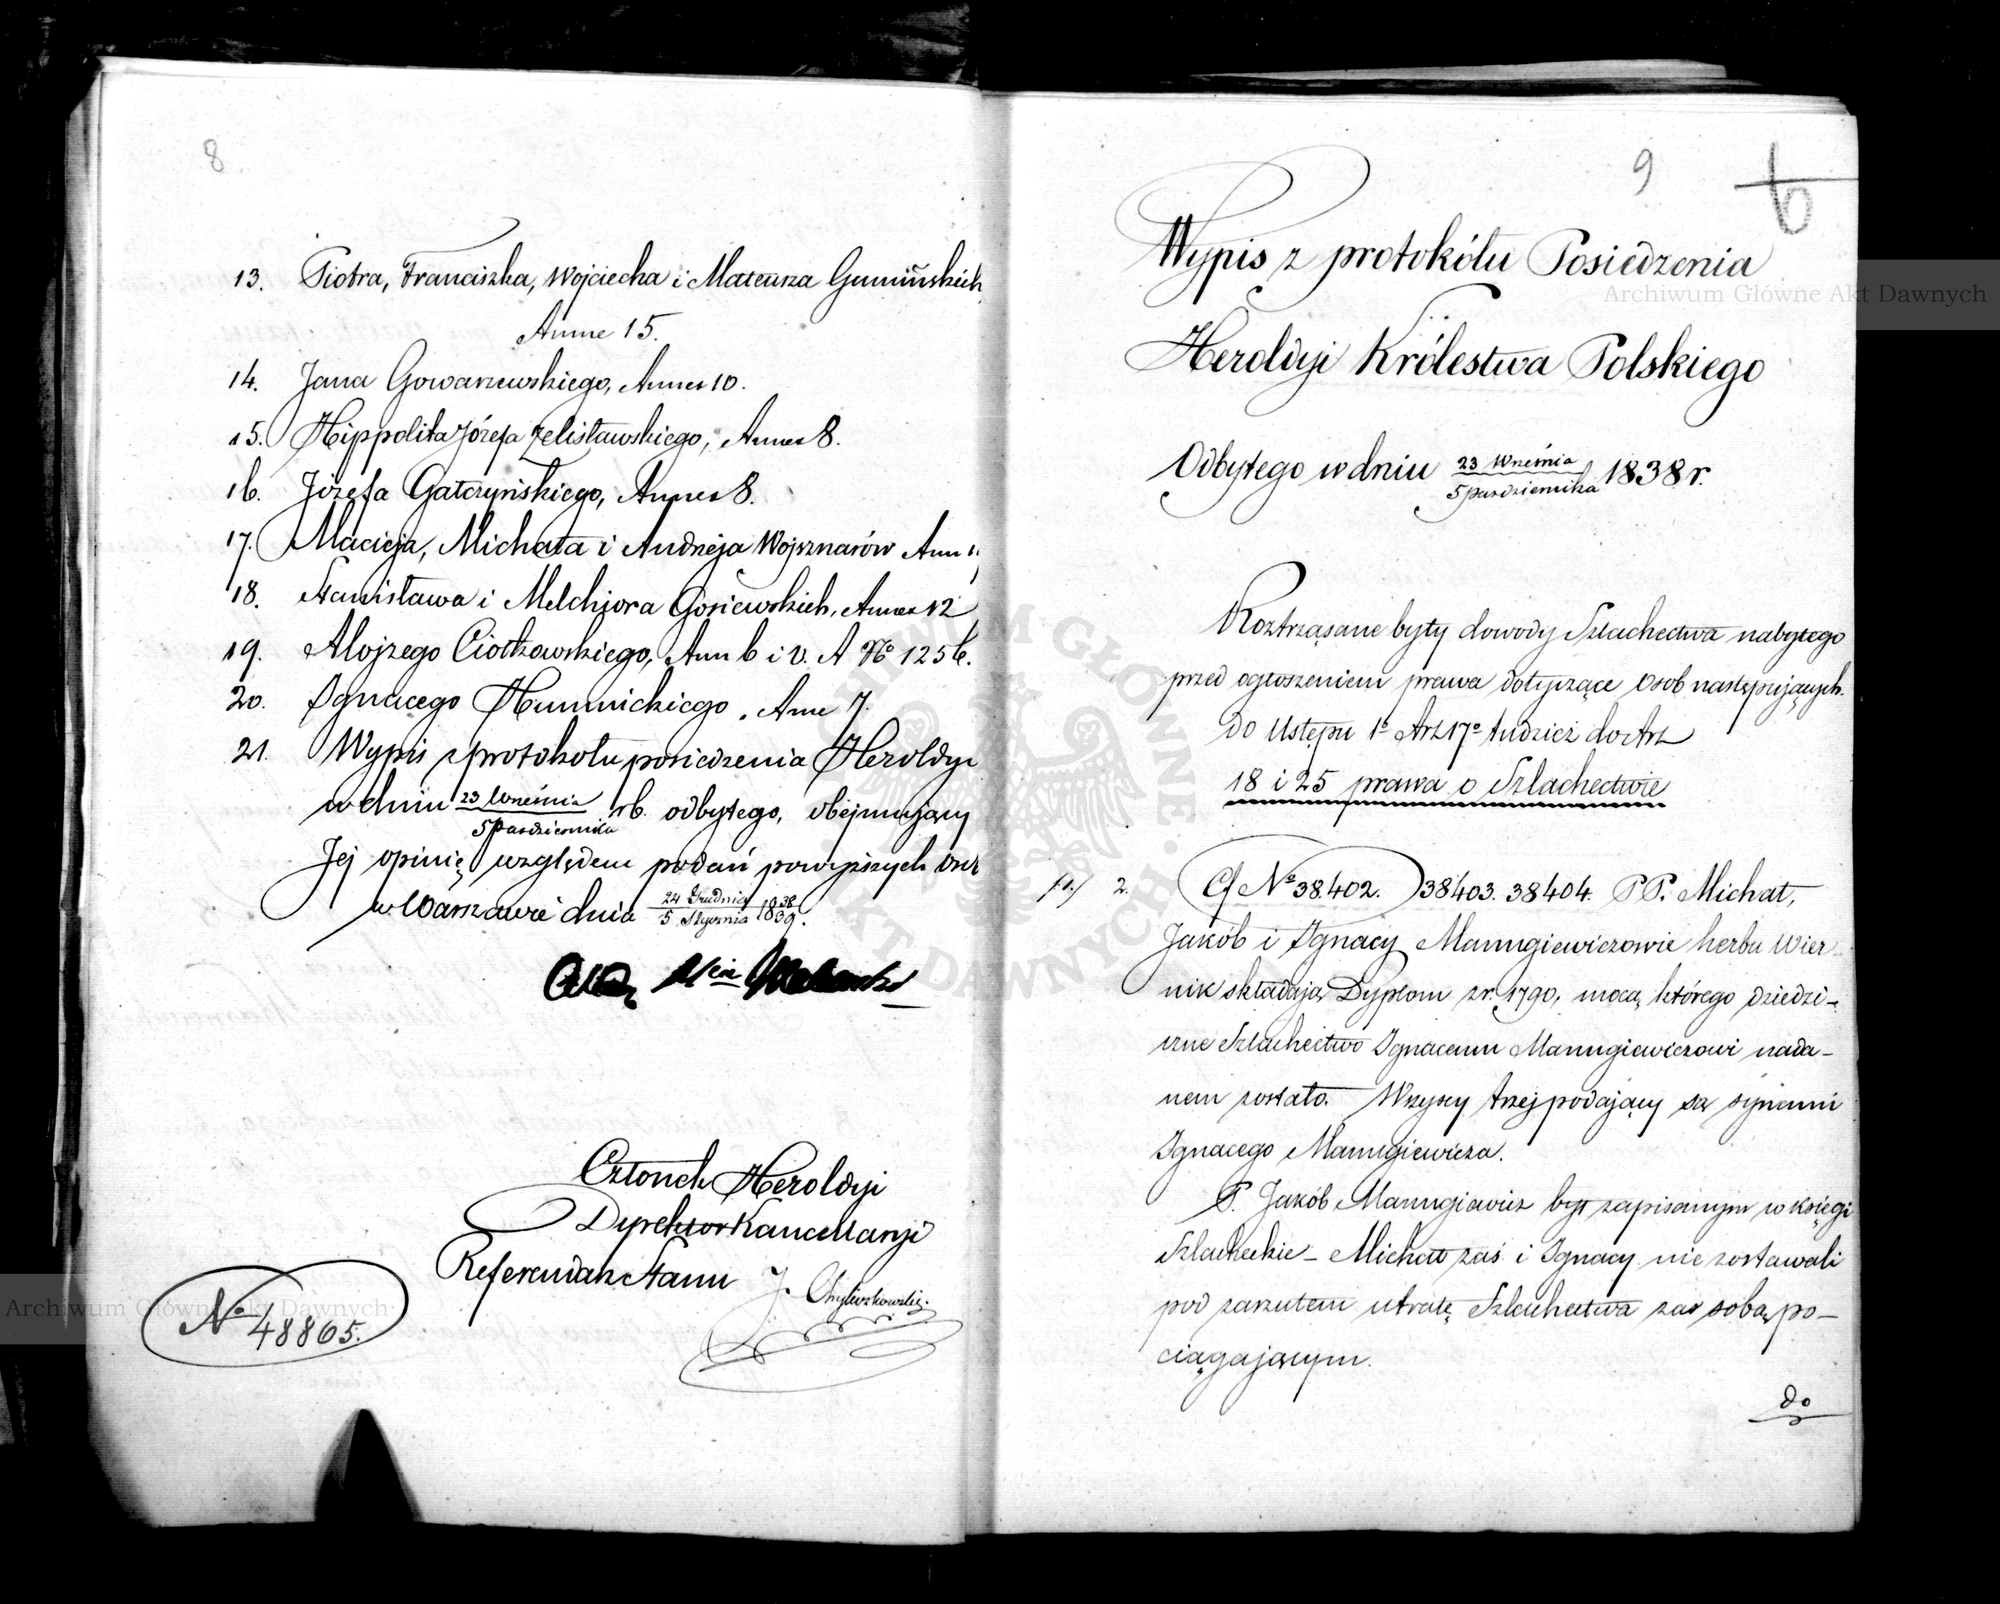 8
13. Piotra, Franciszka, Wojciecha i Mateusza Gumińskich
Anne 15.
14. Jana Gowarzewskiego, Annex 10.
15. Hippolita Józefa Zelisławskiego, Annex 8.
16. Józefa Gałczyńskiego, Annex 8.
17. Macieja, Michała i Andrzeja Wojsznarów Ann
18. Stanisława i Melchiora Gosiewskich, Annex 12
19. Alojzego Ciołkowskiego, Ann 6 i v. A No 1256.
20. Ignacego Humnickiego, Anne 7.
21. Wypis z protokołu posiedzenia Heroldyi
w dniu 23 Września / 5 Października rb. odbytego, obejmujący
Jej opinię względem podań powyższych
w Warszawie dnia 24 Grudnia / 5 Stycznia 1838 / 1839.
Członek Heroldyi
Dyrektor Kancellaryi
Referendarz Stanu
No 48865.
9
6
Wypis z protokółu Posiedzenia
Heroldyi Królestwa Polskiego
Odbytego w dniu 23 Września / 5 Października 1838 r.
Roztrząsane były dowody Szlachectwa nabytego
przed ogłoszeniem prawa dotyczące Osob następujących.
Do Ustępu 1o Art 17o tudzież do Art
18 i 25 prawa o Szlachectwie
2. No 38.402. 38403. 38404. P P. Michał,
Jakób i Ignacy Manugiewiczowie herbu Wier-
nik składają Dyplom z r. 1790, mocą którego dziedzi-
czne Szlachectwo Ignacemu Manugiewiczowi nada-
nem zostało. Wszyscy trzej podający są synami
Ignacego Manugiewicza.
P. Jakób Manugiewicz był zapisanym w księgi
Szlacheckie - Michał zaś i Ignacy nie zostawali
pod zarzutem utratę Szlachectwa za sobą po-
ciągającym.
do
Archiwum Główne Akt Dawnych
Archiwum Główne Akt Dawnych
ARCHIWUM GŁÓWNE AKT DAWNYCH